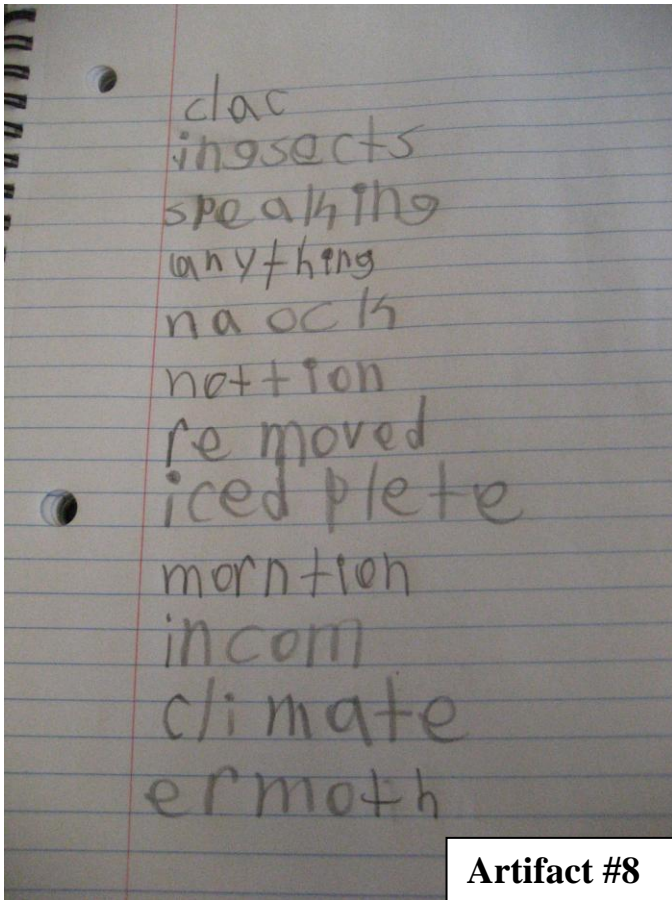 clac
ingsects
speaking
anything
naock
nottion
re moved
iced plete
morntion
incom
climate
ermoth
Artifact #8